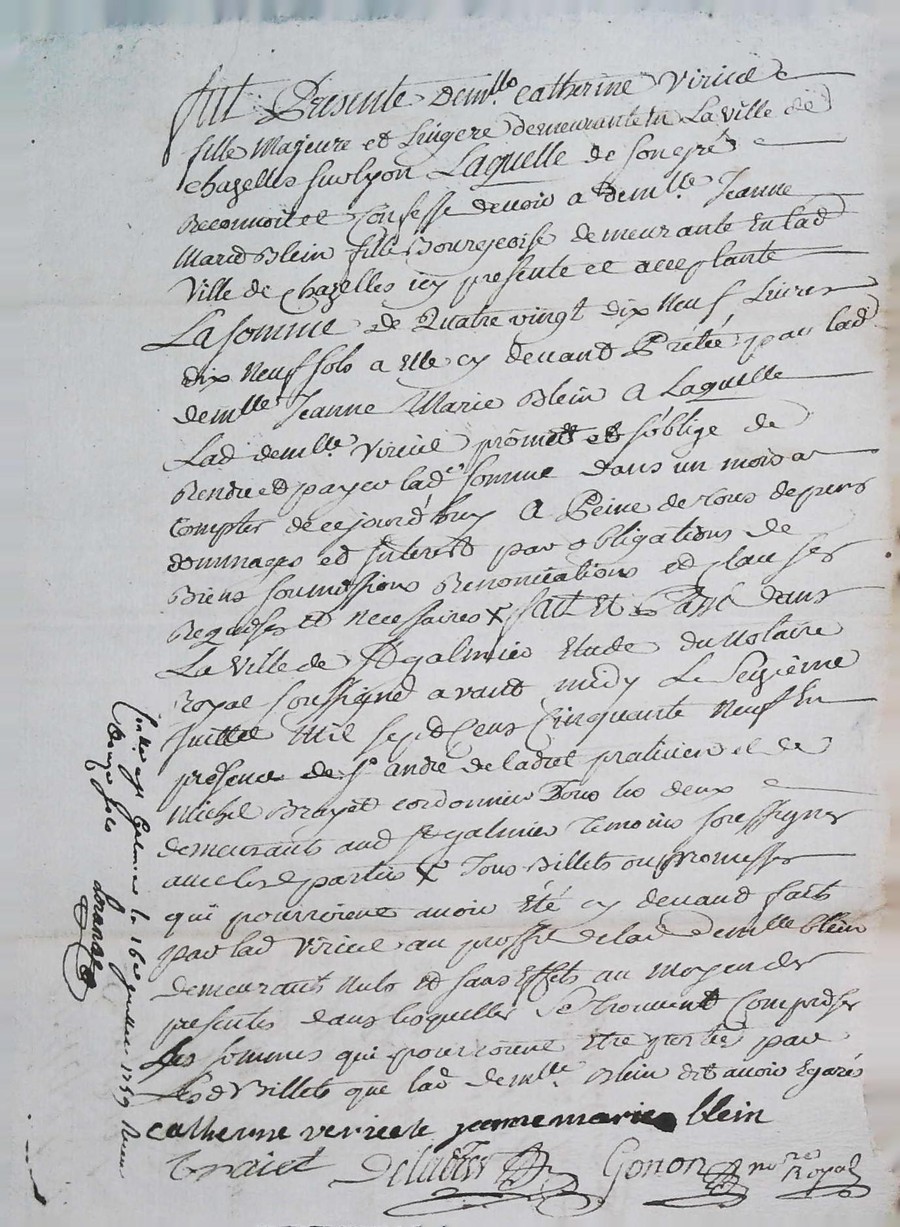 fut Présente demlle. catherine Viricel
fille Majeure et Lingere demeurante en La ville de
chazelles sur lyon Laquelle de son gré
Reconnoit et Confesse devoir a demlle. Jeanne
Marie Blein fille Bourgeoise demeurante En lad
Ville de chazelles icy presente et acceptante
La somme de Quatre vingt dix Neuf Livres
dix Neuf sols a Elle cy devant Prétée par lad
demlle Jeanne Marie Blein a Laquelle
Lad demlle. Viricel promet et s'oblige de
Rendre et payer lade somme dans un mois a
Compter de ce jourd'huy A Peine de tous depens
dommages et Interest par obligations de
Biens soumissions Renonciations et clauses
Requises et Necessaires x fait Et Passé dans
La Ville de St galmier Etude du Notaire
Royal soussigné avant midy Le Seizième
Juillet Mil sept Cens Cinquante Neuf En
présence de Sr andré de praticien et de
Michel Brayet cordonnier Tous les deux
demeurants aud St galmier Temoins soussignes
avec les parties x Tous Billets ou promesses
qui pourroient avoir Eté cy devant faits
par lad Viricel au proffit de lad demlle blein
demeurants Nuls et sans Effets au Moyen des
presentes dans lesquelles se trouvent Comprises
Les sommes qui pourroient Etre portés par
Lesd Billets que lad demlle. Blein dit avoir Egarés
catherine veriele jeanne marie blein
braiet Gonon nore Royal
a st Galmier le 16e juillet 1759 Receu
douze sols